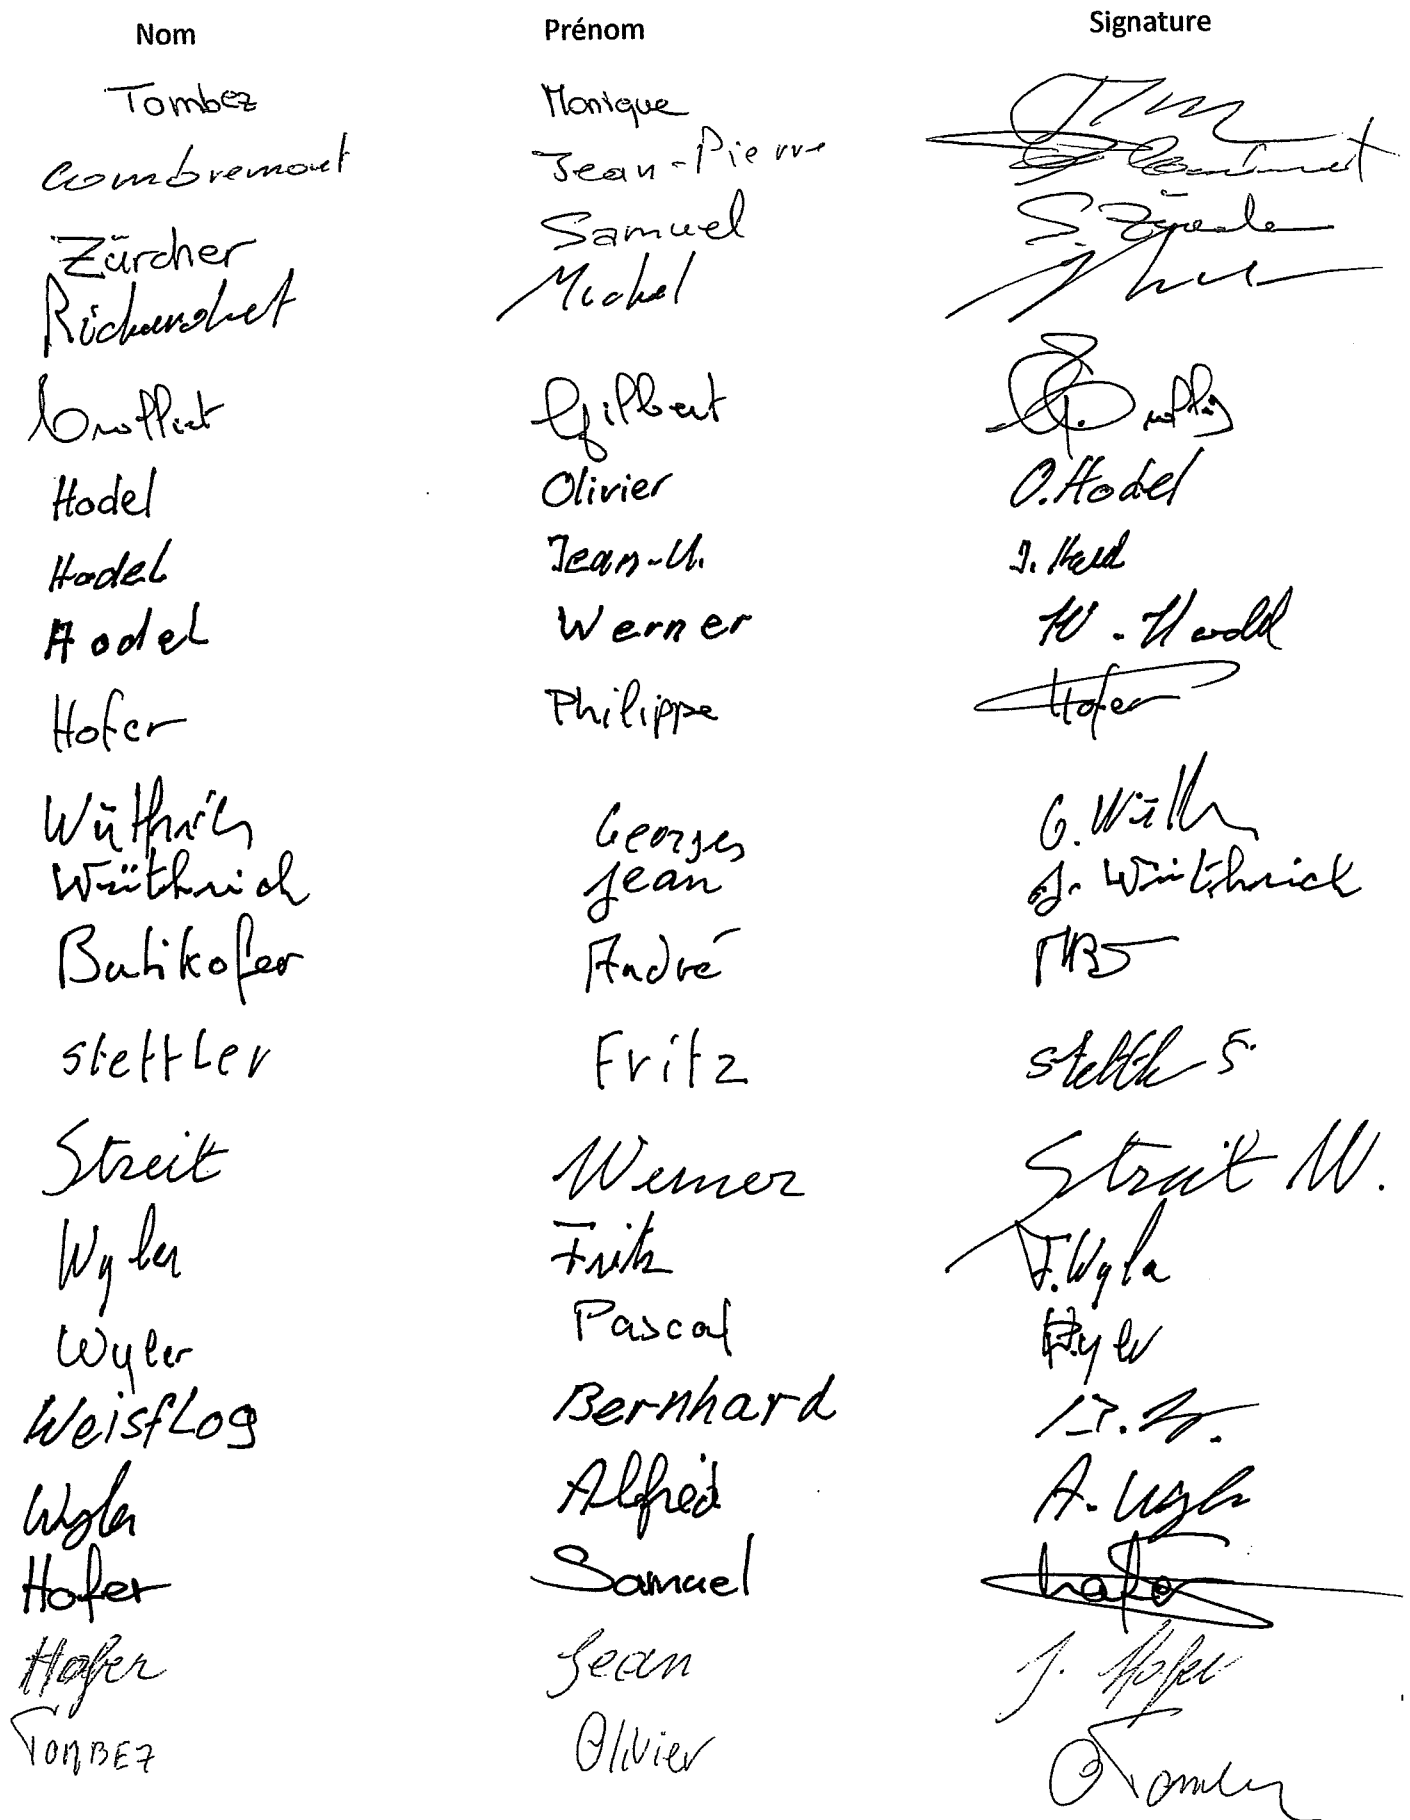 Nom Prénom Signature
Tombez Monique
Combremont Jean-Pierre
Zürcher Samuel S. Zürcher
Michel
Gilbert
Hodel Olivier O.Hodel
Hodel Jean-U. J. Hodel
Hodel Werner W. Hodel
Hofer Philippe Hofer
Wüthrich Georges G. Wüth
Wüthrich Jean J. Wüthrich
Butikofer André
Stettler Fritz Stettler F.
Streit Werner Streit W.
Wyler Fritz F. Wyler
Wyler Pascal P. Wyler
Weisflog Bernhard B. W.
Wyler Alfred A. Wyler
Hofer Samuel Hofer
Hofer Jean J. Hofer
TOMBEZ Olivier O Tombez